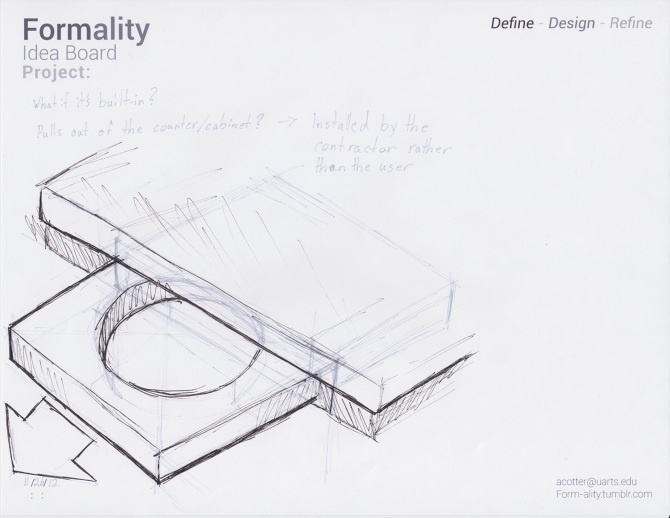 Formality
Idea Board
Project:
Define - Design - Refine
What if it's built-in?
Pulls out of the counter/cabinet? → Installed by the
contractor rather
than the user
acotter@uarts.edu
Form-ality.tumblr.com